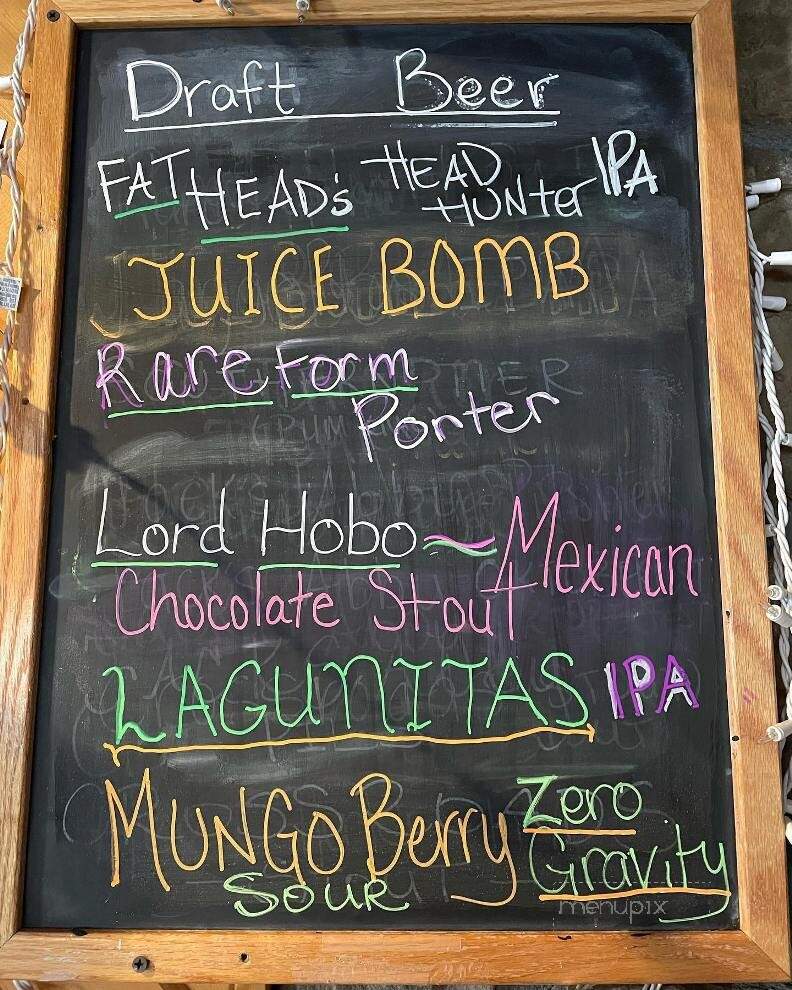 Draft Beer
FAT HEAD's HEAD HUNter IPA
JUICE BOMB
Rare Form
Porter
Lord Hobo ~ Mexican
Chocolate Stout
LAGUNITAS IPA
MUNGO Berry Zero
Sour Gravity
menupix